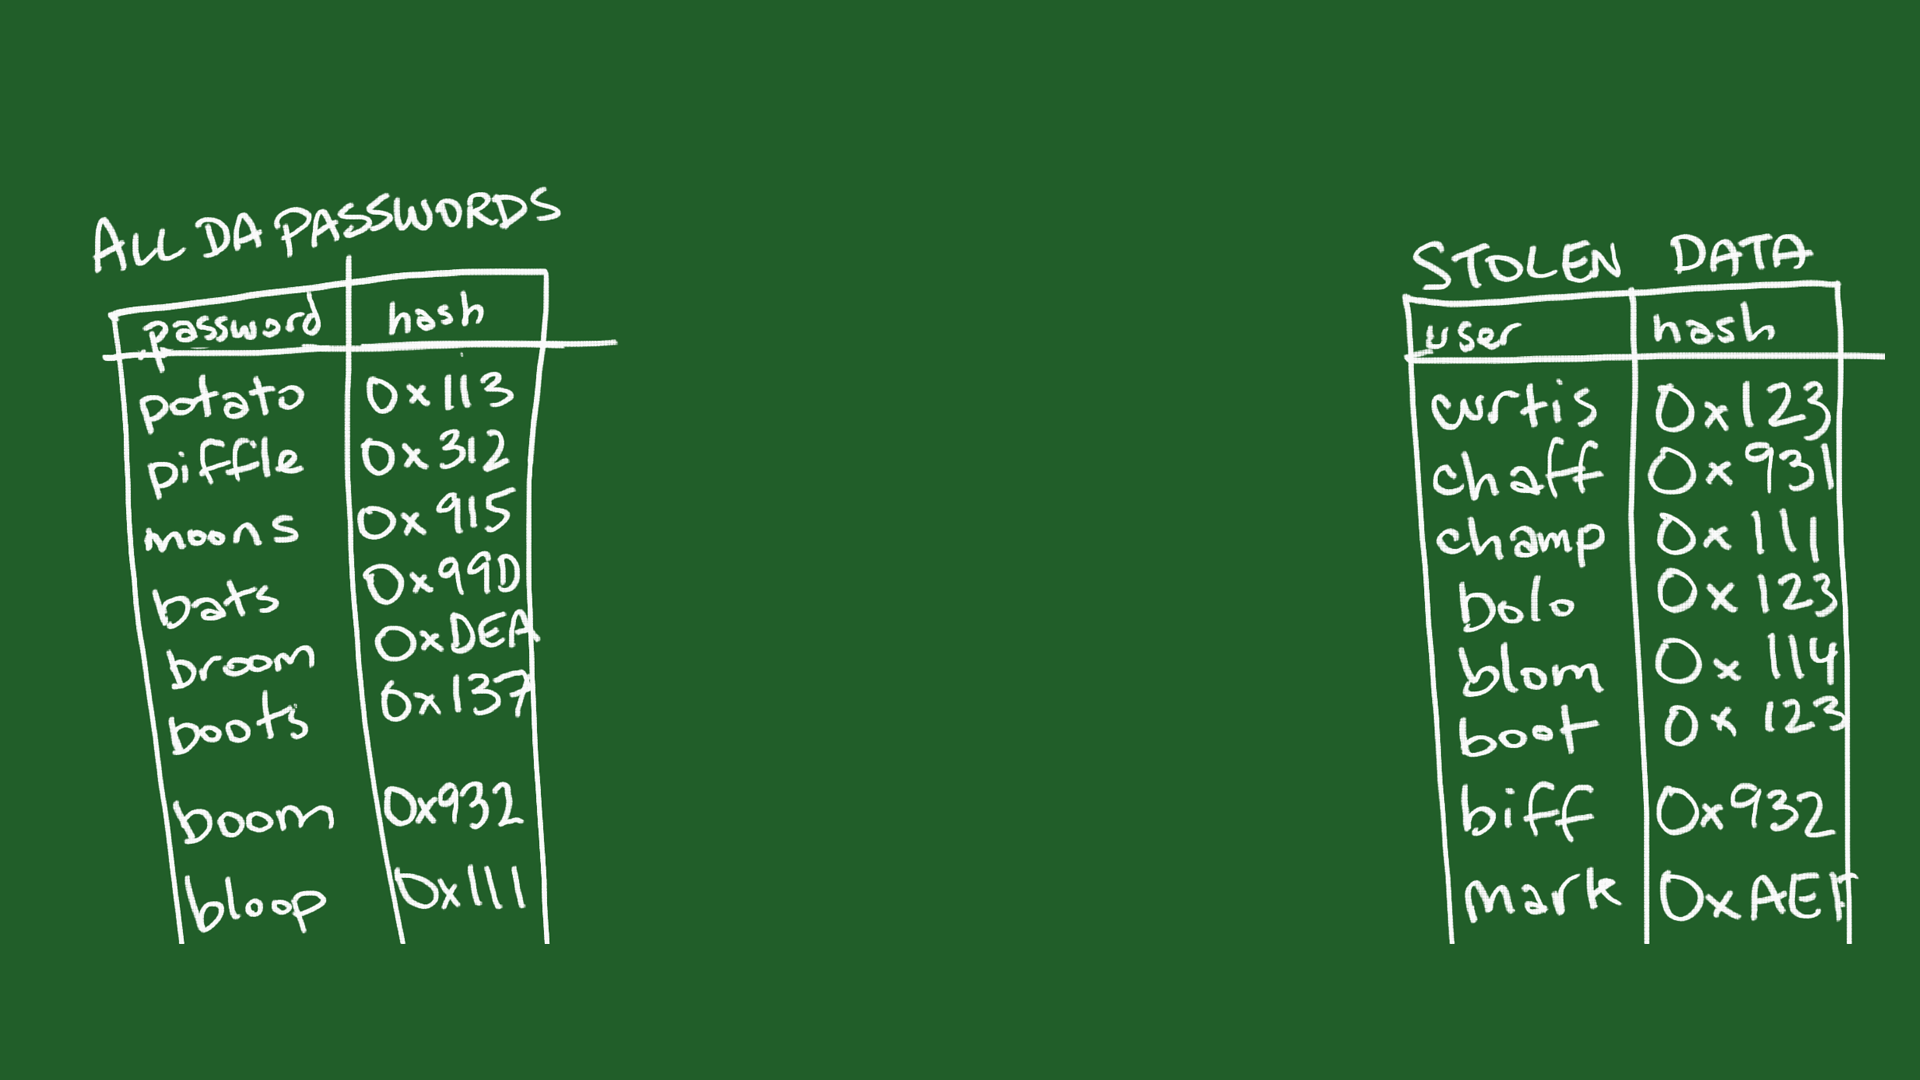 ALL DA PASSWORDS
password hash
potato 0x113
piffle 0x312
moons 0x915
bats 0x99D
broom 0xDEA
boots 0x137
boom 0x932
bloop 0x111
STOLEN DATA
user hash
curtis 0x123
chaff 0x931
champ 0x111
bolo 0x123
blom 0x114
boot 0x123
biff 0x932
mark 0xAEF